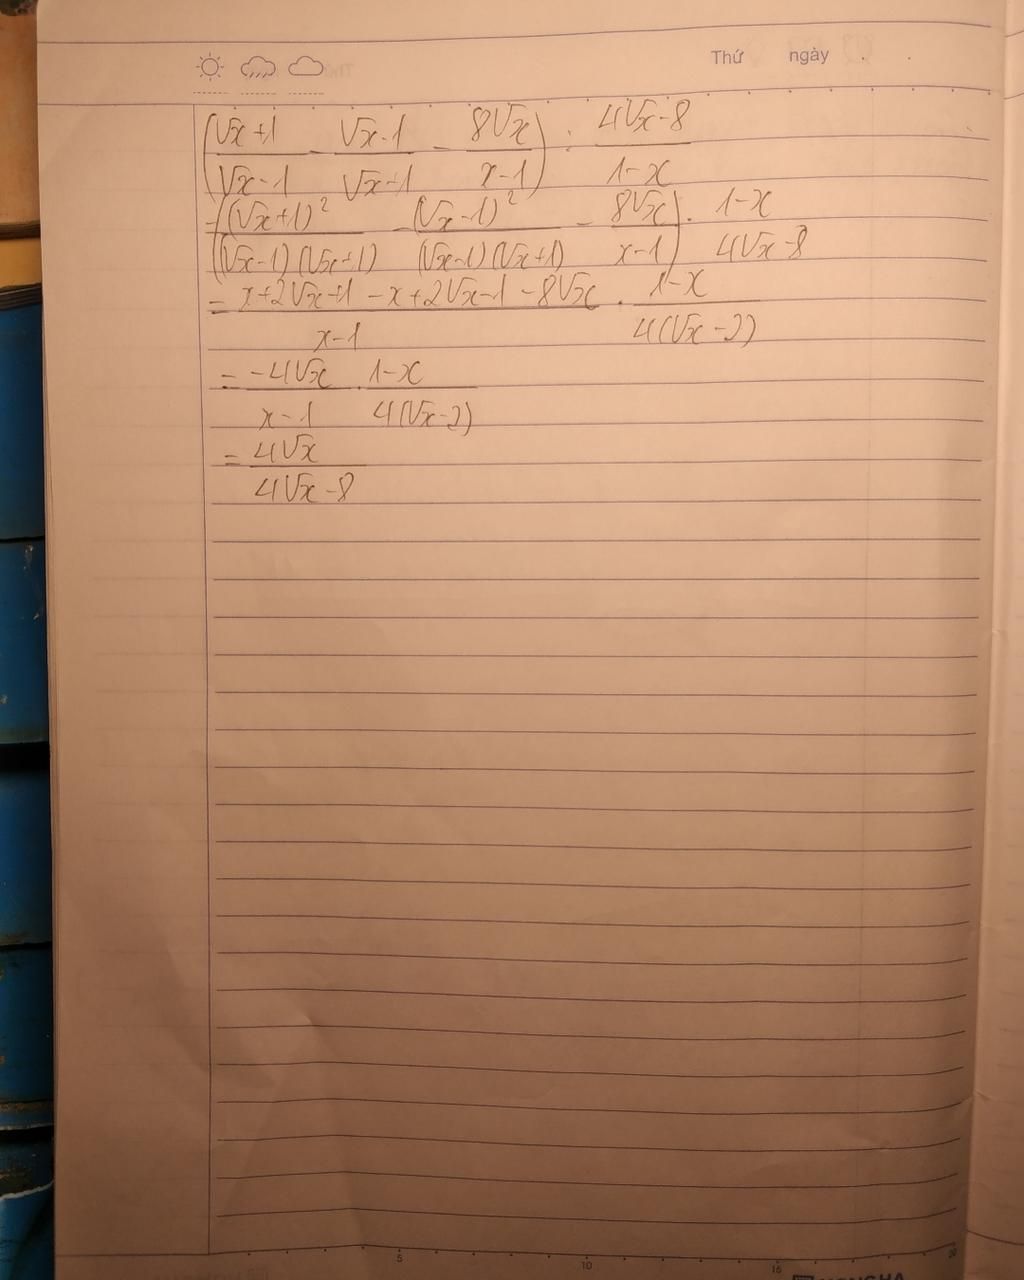 Thứ ngày
(√x+1 / √x-1 - √x-1 / √x+1 - 8√x / x-1) : 4√x-8 / 1-x
=((√x+1)² / (√x-1)(√x+1) - (√x-1)² / (√x-1)(√x+1) - 8√x / x-1) . 1-x / 4√x-8
= x+2√x+1-x+2√x-1-8√x / x-1 . 1-x / 4(√x-2)
= -4√x / x-1 . 1-x / 4(√x-2)
= 4√x / 4√x-8
5 10 15 20